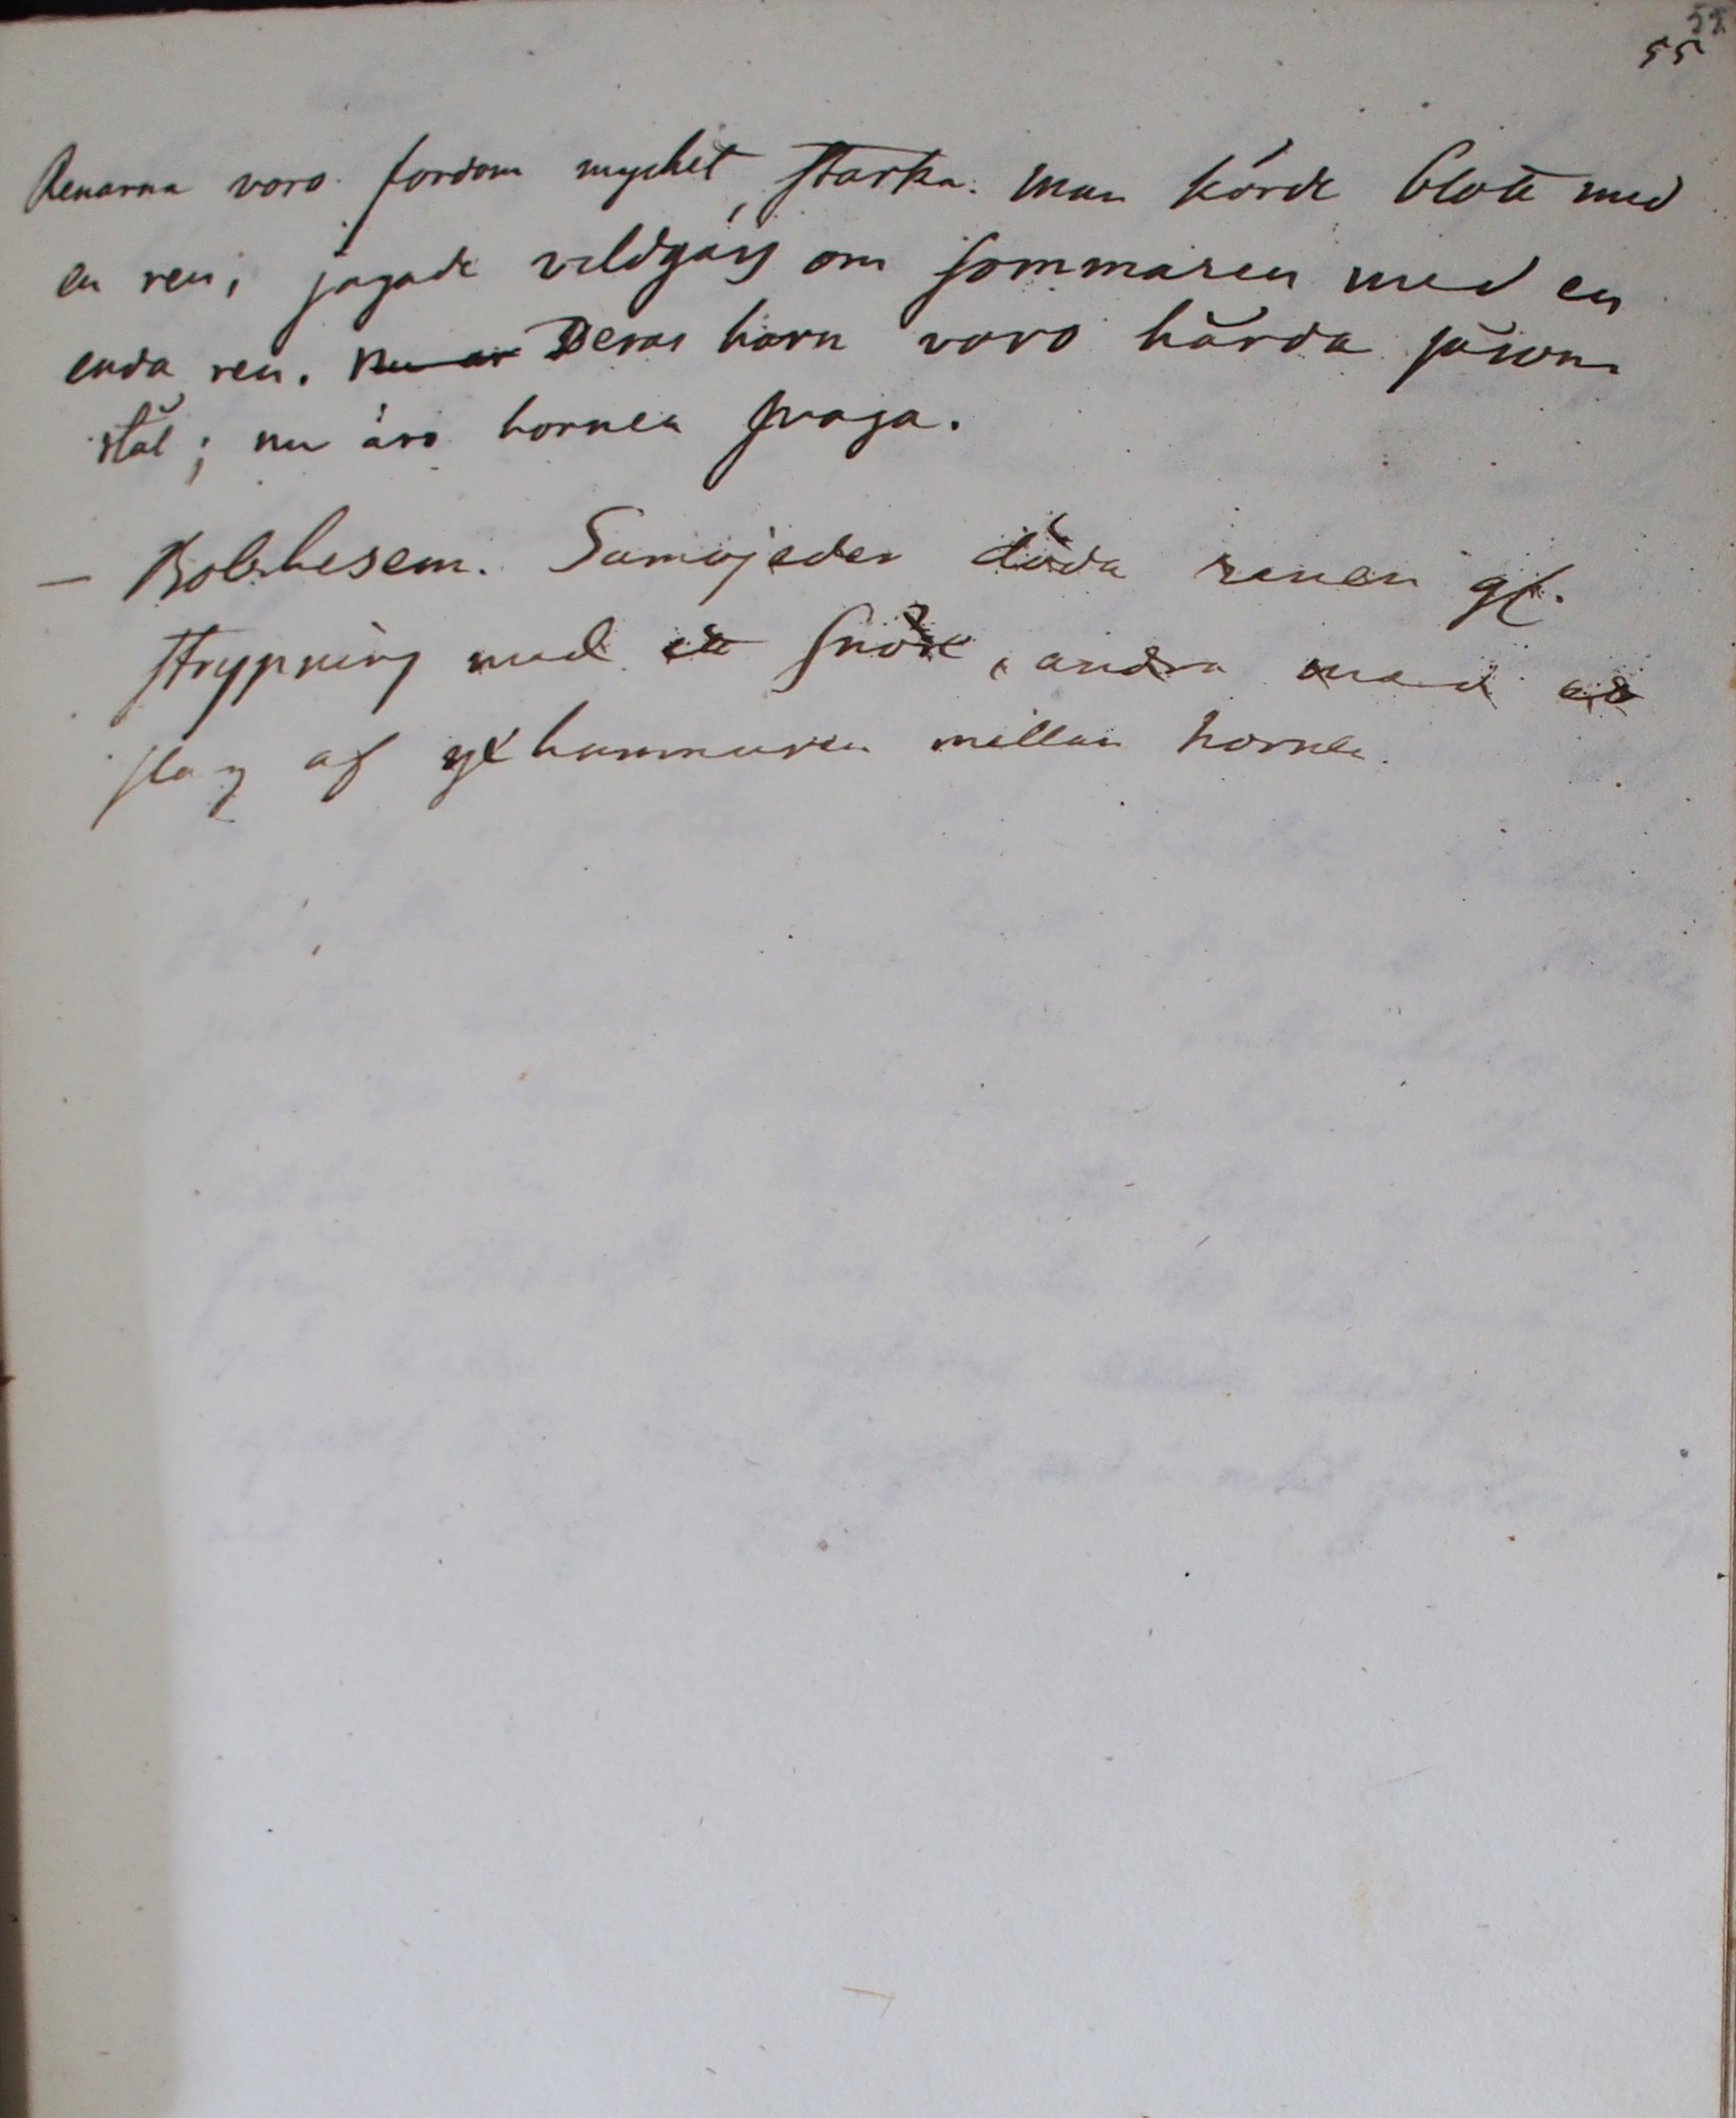 55
55
Renarna voro fordom mycket starka. Man körde blott med
en ren, jagade vildgäss om sommaren med en
enda ren. Nu är Deras horn voro hårda såsom
stål; nu äro hornen svaga.
— Bolshesem. Samojeder döda renen gf.
strypning med ett snöre, andra med ett
slag af yxhammaren mellan hornen.